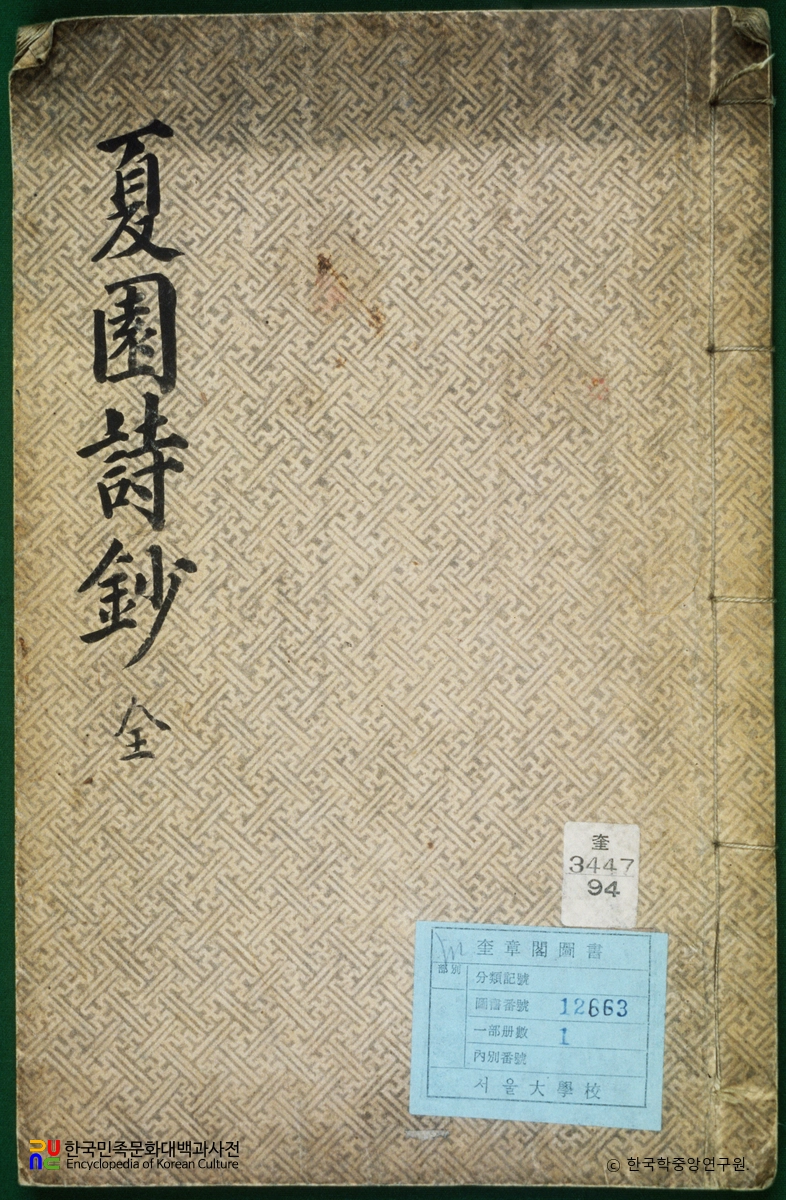 夏園詩鈔 全
奎
3447
94
奎章閣圖書
部別
分類記號
圖書番號 12663
一部册數 1
內別番號
서울大學校
한국민족문화대백과사전
Encyclopedia of Korean Culture
© 한국학중앙연구원.